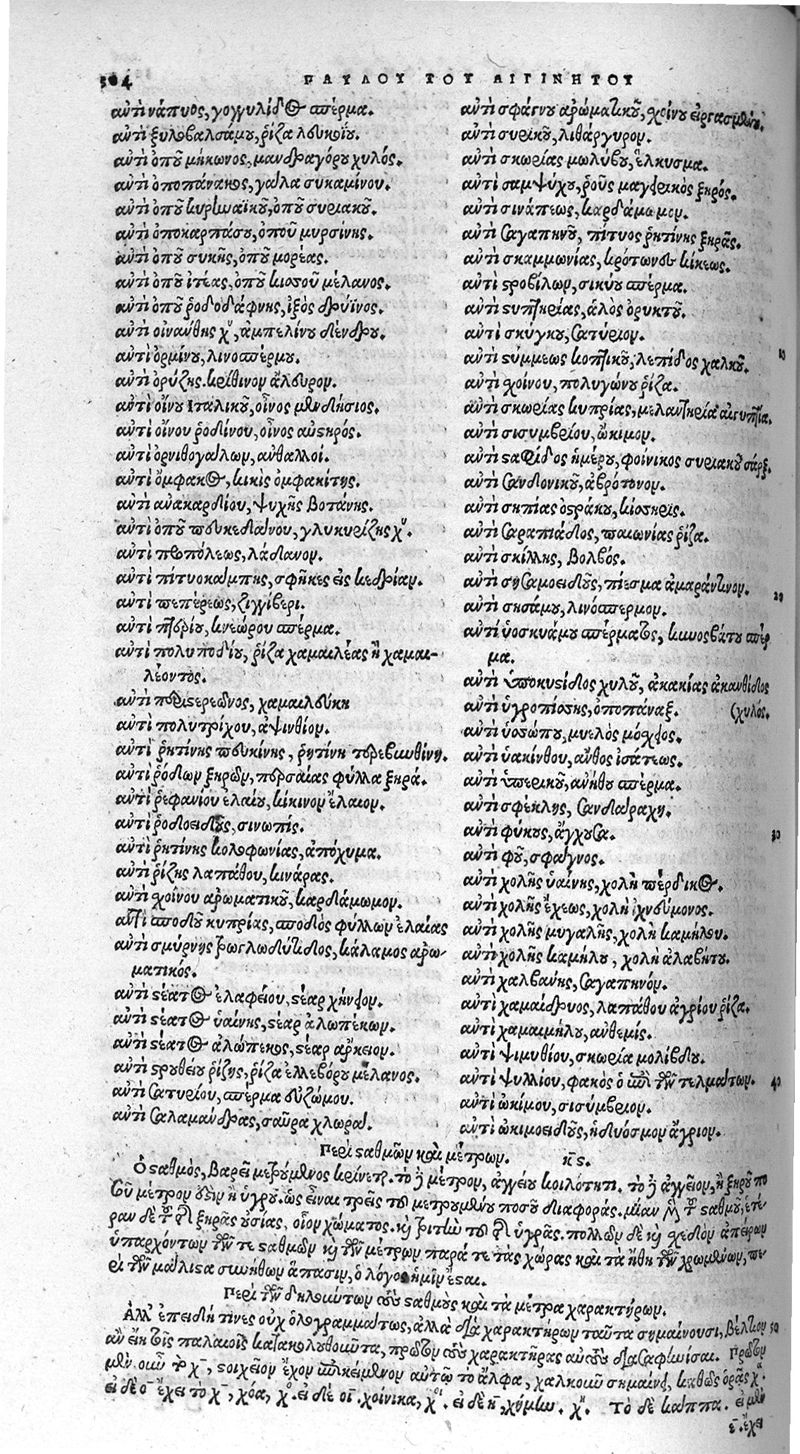 304
ΠΑΥΛΟΥ ΤΟΥ ΑΙΓΙΝΗΤΟΥ
αὐτὶ νάπυος, γογγυλίδος σπέρμα.
αὐτὶ ξυλοβαλσάμου, ῥίζα λευκοΐου.
αὐτὶ ὀποῦ μήκωνος, μανδραγόρου χυλός.
αὐτὶ ὀποπάνακος, γάλα συκαμίνου.
αὐτὶ ὀποῦ κυρηναϊκοῦ, ὀποῦ συριακοῦ.
αὐτὶ ὀποκαρπάσου, ὀποῦ μυρσίνης.
αὐτὶ ὀποῦ συκῆς, ὀποῦ μορέας.
αὐτὶ ὀποῦ ἰτέας, ὀποῦ κισσοῦ μέλανος.
αὐτὶ ὀποῦ ῥοδοδάφνης, ἰξὸς δρύϊνος.
αὐτὶ οἰνάνθης χυ, ἀμπελίνου δένδρου.
αὐτὶ ὁρμίνου, λινοσπέρμου.
αὐτὶ ὀρύζης, κρίθινον ἄλευρον.
αὐτὶ οἴνου Ιταλικοῦ, οἶνος μενδήσιος.
αὐτὶ οἴνου ῥοδίνου, οἶνος αὐστηρός.
αὐτὶ ὀρνιθογάλων, ανθαλλοί.
αὐτὶ ὄμφακος, κικὶς ὀμφακίτης.
αὐτὶ ανακαρδίου, ψυχῆς βοτάνης.
αὐτὶ ὀποῦ πευκεδάνου, γλυκυρίζης χυ.
αὐτὶ προπόλεως, λάδανον.
αὐτὶ πιτυοκάμπης, σφῆκες εἰς κεδρίαν.
αὐτὶ πεπέρεως, ζιγγίβερι.
αὐτὶ πτερίου, κνεώρου σπέρμα.
αὐτὶ πολυποδίου, ῥίζα χαμαιλέας ἢ χαμαι-
λέοντος.
αὐτὶ περιστερεῶνος, χαμαιλεύκη
αὐτὶ πολυτρίχου, ἀψινθίον.
αὐτὶ ῥητίνης πευκίνης, ῥητίνη τερεβινθίνη.
αὐτὶ ῥόδων ξηρῶν, περσαίας φύλλα ξηρά.
αὐτὶ ῥεφανίου ἐλαίου, κίκινον ἔλαιον.
αὐτὶ ῥοδοειδοῦς, σινωπίς.
αὐτὶ ῥητίνης κολοφωνίας, ἀπόχυμα.
αὐτὶ ῥίζης λαπάθου, κινάρας.
αὐτὶ σχοίνου ἀρωματικοῦ, καρδάμωμον.
αὐτὶ σποδοῦ κυπρίας, σποδὸς φύλλων ἐλαίας
αὐτὶ σμύρνης τρωγλωδύτιδος, κάλαμος ἀρω-
ματικός.
αὐτὶ στέατος ἐλαφείου, στέαρ χήνειον.
αὐτὶ στέατος ὑαίνης, στέαρ ἀλωπέκων.
αὐτὶ στέατος ἀλώπεκος, στέαρ ἄρκειον.
αὐτὶ στρουθίου ῥίζης, ῥίζα ἐλλεβόρου μέλανος.
αὐτὶ σατυρίου, σπέρμα εὐζώμου.
αὐτὶ σαλαμάνδρας, σαῦρα χλωρά.
αὐτὶ σφάγνου ἀρωματικοῦ, σχοίνου
αὐτὶ συρικοῦ, λιθάργυρον.
αὐτὶ σκωρίας μολύβου, ἕλκυσμα.
αὐτὶ σαμψύχου, ῥοῦς μαγειρικὸς ξηρός.
αὐτὶ σινάπεως, καρδάμωμον.
αὐτὶ σαγαπηνοῦ, πίτυος ῥητίνης ξηρᾶς.
αὐτὶ σκαμμωνίας, κρότωνος κίκεως.
αὐτὶ στροβίλων, σικύου σπέρμα.
αὐτὶ στυπτηρίας, ἁλὸς ὀρυκτοῦ.
αὐτὶ σκύγκου, σατύριον.
αὐτὶ στύμμεως κοπτικοῦ, λεπίδος χαλκοῦ.
αὐτὶ σχοίνου, πολυγώνου ῥίζα.
αὐτὶ σκωρίας κυπρίας, μελαντηρία αἰγυπτία.
αὐτὶ σισυμβρίου, ὤκιμον.
αὐτὶ σταφίδος ἡμέρου, φοίνικος συριακοῦ σάρξ.
αὐτὶ σανδονικοῦ, ἀβρότονον.
αὐτὶ σηπίας ὀστράκου, κίσσηρις.
αὐτὶ σαραπιάδος, παιωνίας ῥίζα.
αὐτὶ σκίλλης, βολβός.
αὐτὶ σησαμοειδοῦς, πίεσμα ἀμαράντινον.
αὐτὶ σησάμου, λινόσπερμον.
αὐτὶ ὑοσκυάμου σπέρματος, κυνοσβάτου σπέρ
μα.
αὐτὶ ὑποκυστίδος χυλοῦ, ἀκακίας ἀκανθίδος
(χυλός.
αὐτὶ ὑγροπίσσης, ὀποπάναξ.
αὐτὶ ὑσσώπου, μυελὸς μόσχειος.
αὐτὶ ὑακίνθου, ἄνθος ἰσάτεως.
αὐτὶ ὑπερικοῦ, ἀνήθου σπέρμα.
αὐτὶ σφέκλης, σανδαράχη.
αὐτὶ φύκους, ἄγχουσα.
αὐτὶ φοῦ, σφάγνος.
αὐτὶ χολῆς ὑαίνης, χολὴ πέρδικος.
αὐτὶ χολῆς ἔχεως, χολὴ ἰχνεύμονος.
αὐτὶ χολῆς μυγαλῆς, χολὴ καμήλου.
αὐτὶ χολῆς καμήλου, χολὴ ἀλαβήτου.
αὐτὶ χαλβάνης, σαγαπηνόν.
αὐτὶ χαμαίδρυος, λαπάθου ἀγρίου ῥίζα.
αὐτὶ χαμαιμήλου, ανθεμίς.
αὐτὶ ψιμυθίου, σκωρία μολίβδου.
αὐτὶ ψυλλίου, φακὸς ὁ ἐπὶ τῶν τελμάτων.
αὐτὶ ὠκίμου, σισύμβριον.
αὐτὶ ὠκιμοειδοῦς, ἡδύοσμον ἄγριον.
10
20
30
40
Περὶ σταθμῶν καὶ μέτρων. κϛ.
Ὁ σταθμὸς, βαρεῖ μετρούμενος κρίνεται. τὸ δὲ μέτρον, ἀγγείου κοιλότητι. τὸ δὲ ἀγγεῖον, ἢ ξηροῦ πο
σοῦ μέτρον ἐστὶν ἢ ὑγροῦ. ὡς εἶναι τρεῖς τοῦ μετρουμένου ποσοῦ διαφοράς. μίαν μὲν τοῦ σταθμοῦ, ἑτέ-
ραν δὲ τὴν τῆς ξηρᾶς οὐσίας, οἷον χώματος. καὶ τρίτην τὴν τῆς ὑγρᾶς. πολλῶν δὲ καὶ σχεδὸν ἀπείρων
ὑπαρχόντων τῶν τε σταθμῶν καὶ τῶν μέτρων παρά τε τὰς χώρας καὶ τὰ ἤθη τῶν χρωμένων, πε-
ρὶ τῶν μάλιστα συνήθων ἅπασιν, ὁ λόγος ἡμῖν ἔσται.
Περὶ τῶν δηλούντων τοὺς σταθμοὺς καὶ τὰ μέτρα χαρακτήρων.
Ἀλλ' ἐπειδή τινες οὐχ ὁλογραμμάτως, ἀλλὰ διὰ χαρακτήρων ταῦτα σημαίνουσι, βέλτιον 50
ἂν εἴη τοῖς παλαιοῖς κατακολουθοῦντα, πρῶτον τοὺς χαρακτῆρας αὐτοὺς διασαφῆσαι. Πρῶτον
μὲν οὖν τὸ χ̄, στοιχεῖον ἔχον ἐπικείμενον αὐτῷ τὸ ἄλφα, χαλκοῦν σημαίνει, καθὼς ὁρᾷς χα.
εἰ δὲ ο̄ ἔχει τὸ χ̄, χόα, χο. εἰ δὲ οῑ. χοίνικα, χοι. εἰ δὲ η̄, χήμην. χη. Τὸ δὲ κάππα. εἰ μὲν
ε̄. ἔχει